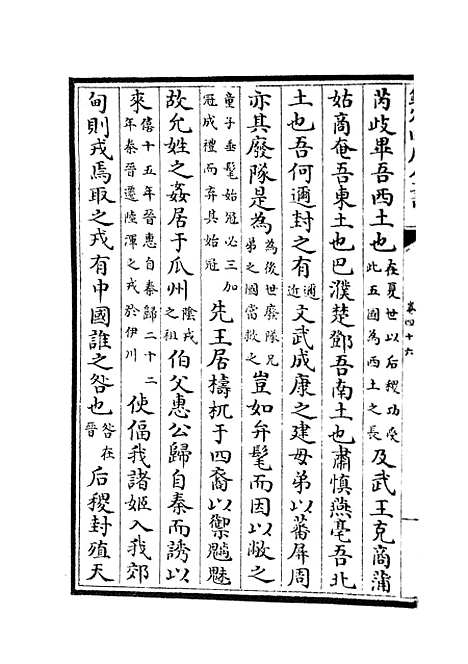 卷四十六
芮歧畢吾西土也在夏世以后稷功受此五國為西土之長及武王克商蒲
姑商奄吾東土也巴濮楚鄧吾南土也肅慎燕亳吾北
土也吾何邇封之有邇近文武成康之建母弟以蕃屏周
亦其廢隊是為為後世廢隊兄弟之國當救之豈如弁髦而因以敝之
童子垂髦始冠必三加冠成禮而弃其始冠先王居檮杌于四裔以禦魑魅
故允姓之姦居于瓜州陰戎之祖伯父惠公歸自秦而誘以
來僖十五年晉惠自秦歸二十二年秦晉遷陸渾之戎於伊川使偪我諸姬入我郊
甸則戎焉取之戎有中國誰之咎也咎在晉后稷封殖天